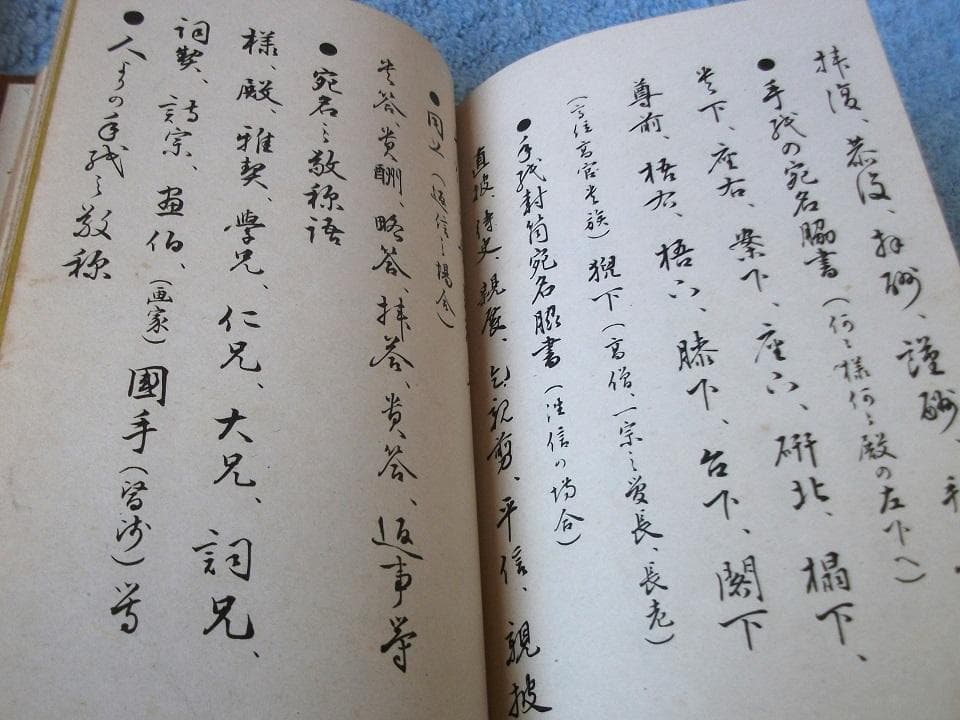 拝復、恭復、拝酬、謹酬、
●手紙の宛名脇書(何々様何々殿の左下へ)
貴下、座右、案下、座下、研北、榻下、
尊前、梧右、梧下、膝下、台下、閣下
(高位高官貴族)猊下(高僧、一宗之管長、長老)
●手紙封筒宛名脇書(往信の場合)
直披、侍史、親展、乞親剪、平信、親披
●同上(返信之場合)
貴答、貴酬、略答、拝答、貴答、返事等
●宛名之敬称語
様、殿、雅契、学兄、仁兄、大兄、詞兄、
詞契、詩宗、画伯、(画家)國手(醫師)等
●人よりの手紙之敬称